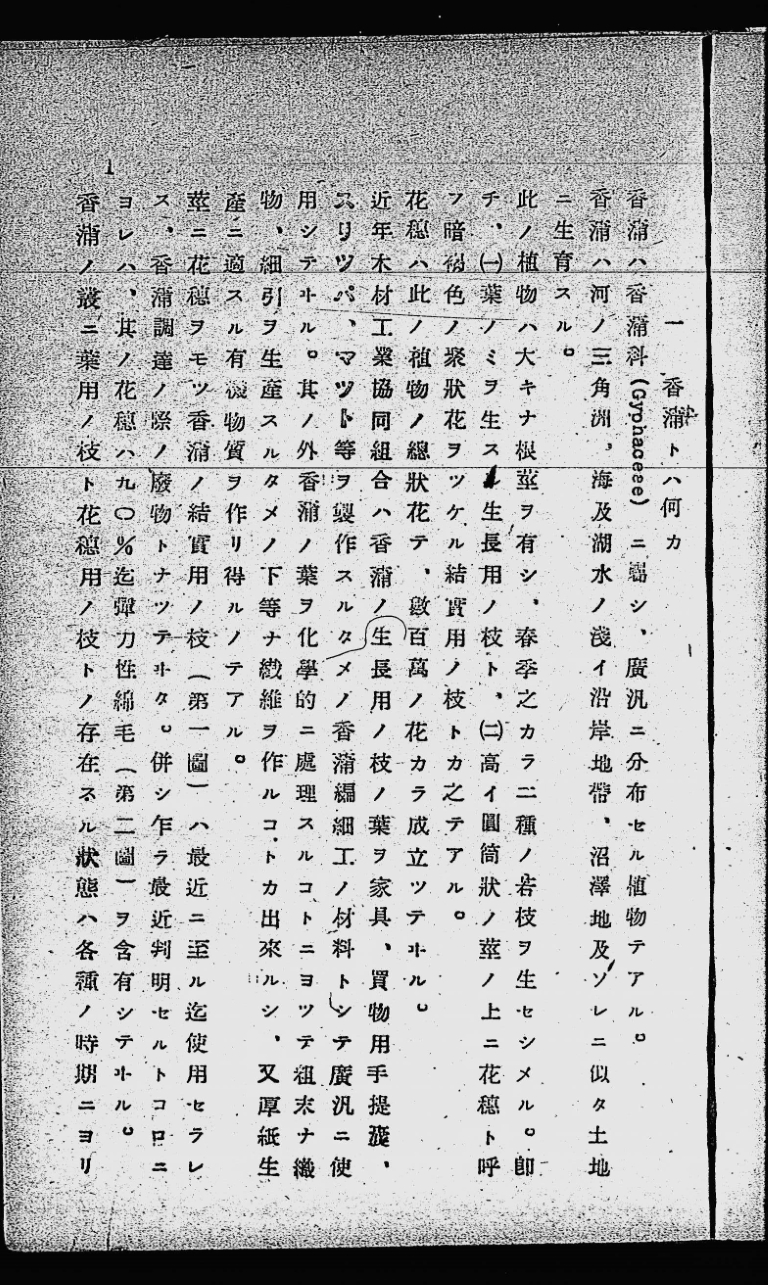 一　香蒲トハ何カ
香蒲ハ香蒲科(Gyphaceae)ニ屬シ、廣汎ニ分布セル植物テアル。
香蒲ハ河ノ三角洲、海及湖水ノ淺イ沿岸地帶、沼澤地及ソレニ似タ土地
ニ生育スル。
此ノ植物ハ大キナ根莖ヲ有シ、春季之カラ二種ノ若枝ヲ生セシメル。卽
チ、㈠葉ノミヲ生スル生長用ノ枝ト、㈡高イ圓筒狀ノ莖ノ上ニ花穗ト呼
フ暗褐色ノ聚狀花ヲツケル結實用ノ枝トカ之テアル。
花穗ハ此ノ植物ノ總狀花テ、數百萬ノ花カラ成立ツテヰル。
近年木材工業協同組合ハ香蒲ノ生長用ノ枝ノ葉ヲ家具、買物用手提袋、
スリツパ、マツト等ヲ製作スルタメノ香蒲編細工ノ材料トシテ廣汎ニ使
用シテヰル。其ノ外香蒲ノ葉ヲ化學的ニ處理スルコトニヨツテ粗末ナ織
物、細引ヲ生產スルタメノ下等ナ纖維ヲ作ルコトカ出來ルシ、又厚紙生
產ニ適スル有機物質ヲ作リ得ルノテアル。
莖ニ花穗ヲモツ香蒲ノ結實用ノ枝（第一圖）ハ最近ニ至ル迄使用セラレ
ス、香蒲調達ノ際ノ廢物トナツテヰタ。併シ乍ラ最近判明セルトコロニ
ヨレハ、其ノ花穗ハ九〇％迄彈力性綿毛（第二圖）ヲ含有シテヰル。
香蒲ノ叢ニ葉用ノ枝ト花穗用ノ枝トノ存在スル狀態ハ各種ノ時期ニヨリ
1